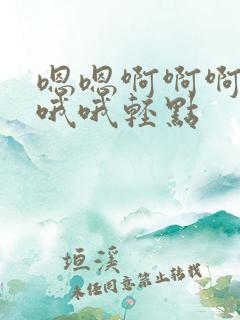 嗯嗯啊啊啊
哦哦轻點
垣溪
未经同意禁止转载